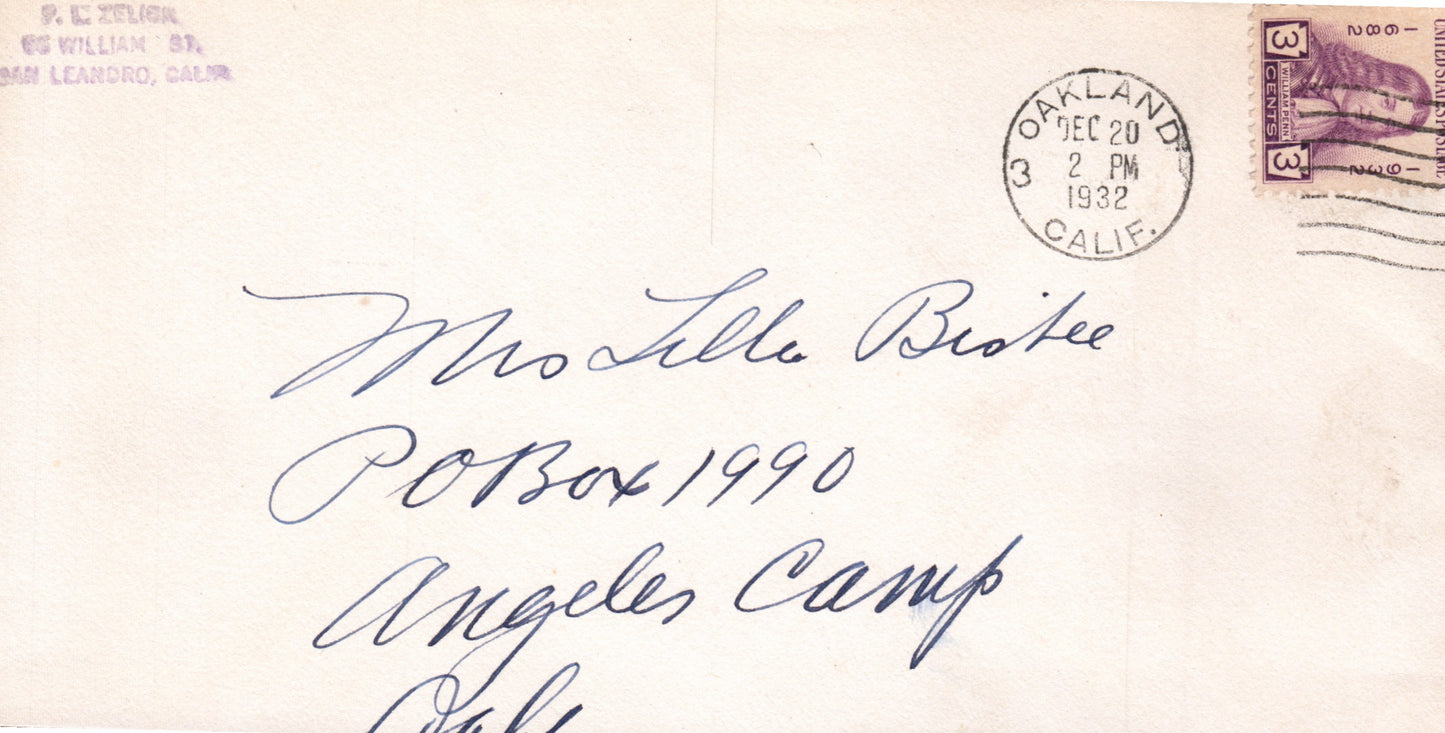 P. E. ZELICK
WILLIAM ST.
SAN LEANDRO, CALIF.
OAKLAND
DEC 20
2 PM
1932
3
CALIF.
UNITED STATES POSTAGE
1682
1932
WILLIAM PENN
3 CENTS 3
Mrs Lilla Bisbee
P O Box 1990
Angeles Camp
Calif